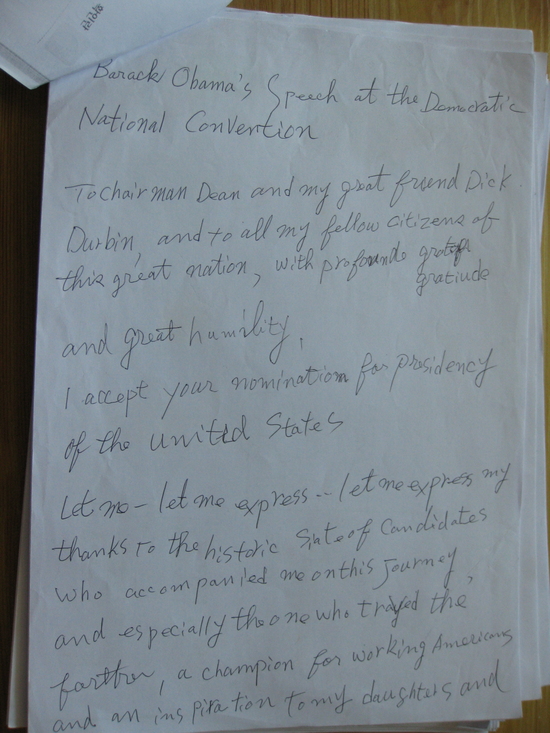 Barack Obama's Speech at the Democratic
National Convention
To chairman Dean and my great friend Dick
Durbin, and to all my fellow citizens of
this great nation, with profounde
gratiude
and great humility,
I accept your nomination for presidency
of the United States
Let me - let me express -- let me express my
thanks To the historic Slate of Candidates
who accompanied me on this Journey,
and especially the one who the
, a champion for working Americans
and an inspiration to my daughters and